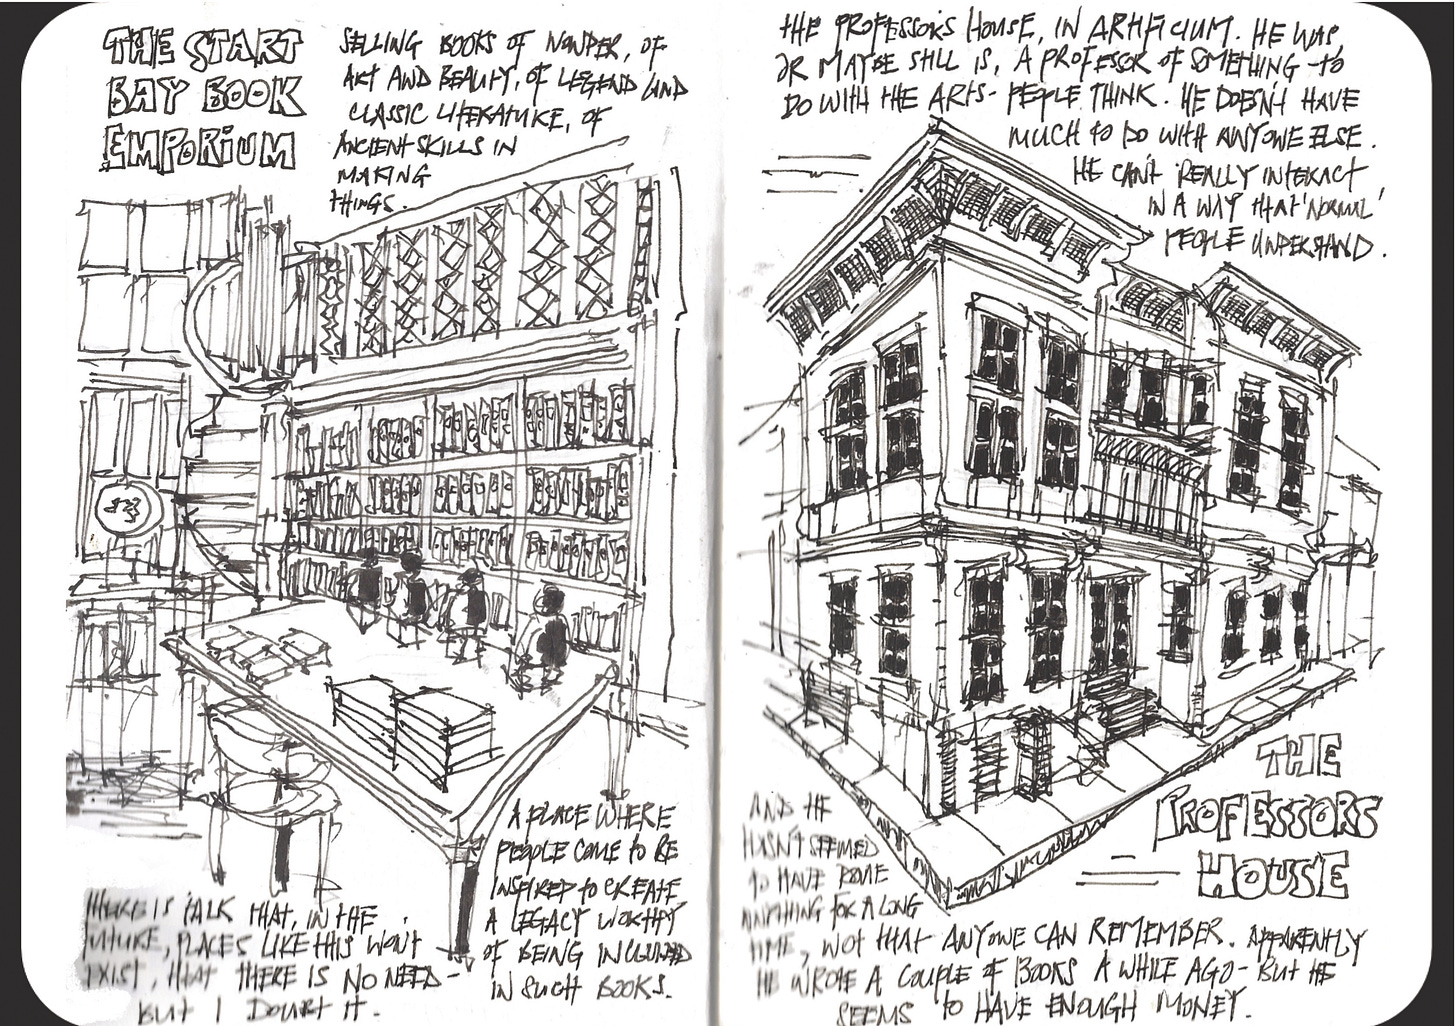 THE START
BAY BOOK
EMPORIUM
SELLING BOOKS OF WONDER, OF
ART AND BEAUTY, OF LEGEND AND
CLASSIC LITERATURE, OF
ANCIENT SKILLS IN
MAKING
THINGS.
A PLACE WHERE
PEOPLE COME TO BE
INSPIRED TO CREATE
A LEGACY WORTHY
OF BEING INCLUDED
IN SUCH BOOKS.
THERE IS TALK THAT, IN THE
FUTURE, PLACES LIKE THIS WON'T
EXIST, THAT THERE IS NO NEED -
BUT I DOUBT IT.
THE PROFESSOR'S HOUSE, IN ARTIFICIUM. HE WAS,
OR MAYBE STILL IS, A PROFESSOR OF SOMETHING TO
DO WITH THE ARTS - PEOPLE THINK. HE DOESN'T HAVE
MUCH TO DO WITH ANYONE ELSE.
HE CAN'T REALLY INTERACT
IN A WAY THAT 'NORMAL'
PEOPLE UNDERSTAND.
THE
PROFESSORS
HOUSE
AND HE
HASN'T SEEMED
TO HAVE DONE
ANYTHING FOR A LONG
TIME, NOT THAT ANYONE CAN REMEMBER. APPARENTLY
HE WROTE A COUPLE OF BOOKS A WHILE AGO - BUT HE
SEEMS TO HAVE ENOUGH MONEY.